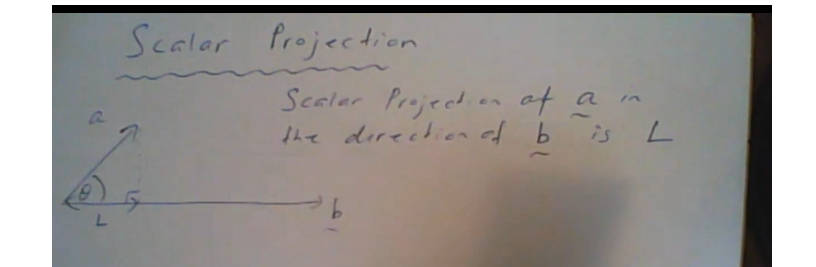 Scalar Projection
Scalar Projection of a in
the direction of b is L
a
θ
L
b